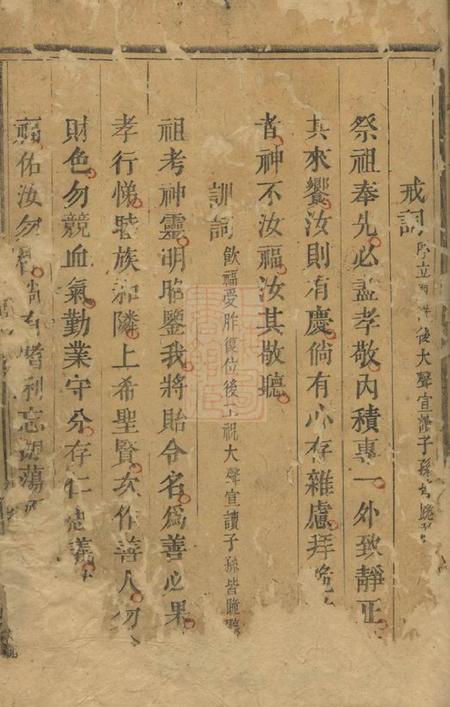 戒詞 後大聲宣 子孫
祭祖奉先必盡孝敬內積專一外致靜正
其來饗汝則有慶倘有心存雜慮拜
者神不汝福汝其敬聽
訓詞 飲福受胙復位後 祝大聲宣讀子孫皆跪聽
祖考神靈明昭鑒我將貽令名爲善必果
孝行悌睦族和隣上希聖賢次作善人勿
財色勿競血氣勤業守分存仁
佑汝勿 利忘 蕩